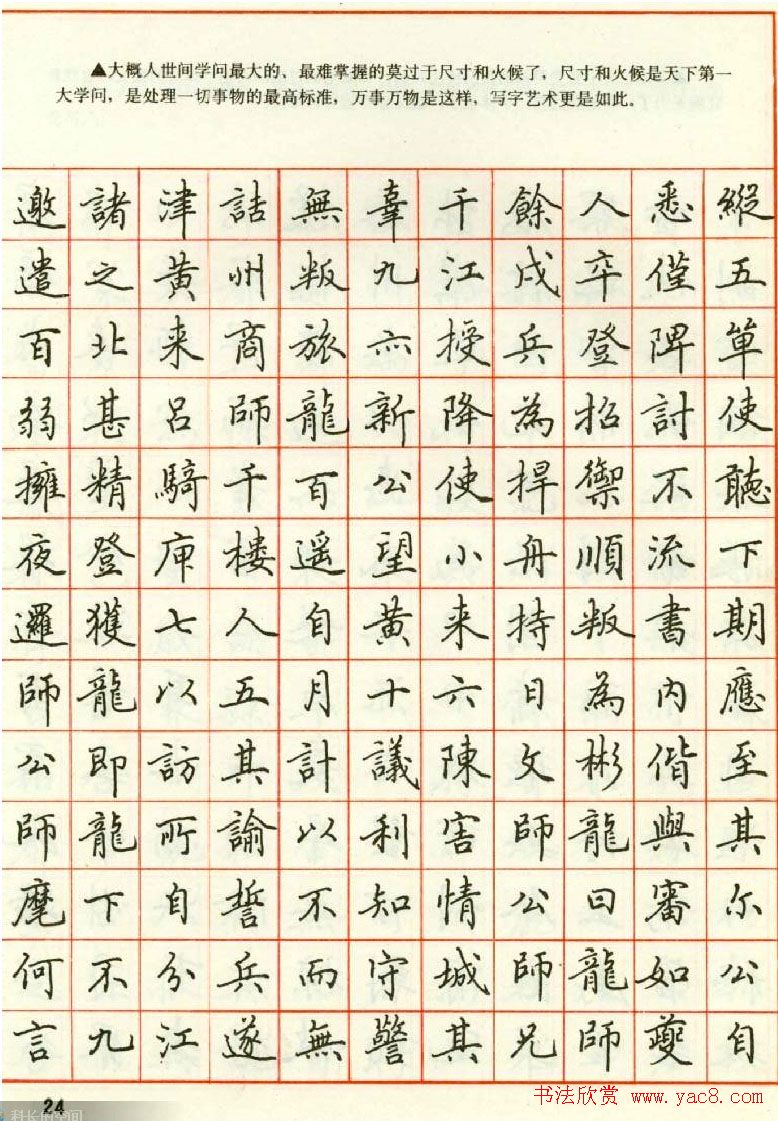 ▲大概人世间学问最大的、最难掌握的莫过于尺寸和火候了，尺寸和火候是天下第一
大学问，是处理一切事物的最高标准，万事万物是这样，写字艺术更是如此。
邀諸津詰無辜千餘人悉縱
遣之黄州叛九江戍卒僅五
百北来商旅亦授兵登陴單
弱甚吕師龍新降為招討使
擁精騎千百公使捍禦不聽
夜登庾樓遥望小舟順流下
邏獲七人自黄来持叛書期
師龍以五月十六日為内應
公即訪其計議陳文彬偕至
師龍所諭以利害師龍與其
麾下自誓不知情公曰審尔
何不分兵而守城師龍如公
言九江遂無警其兄師夔自
24
科长的空间
书法欣赏 www.yac8.com